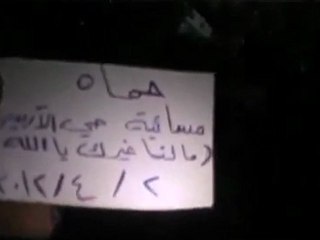 حماه
مسائية حي الأربعين
(مالنا غيرك يا الله
٢٠١٢/٤/٢